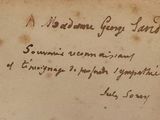 A Madame George Sand
Souvenir reconnaissant
et témoignage de profonde sympathie